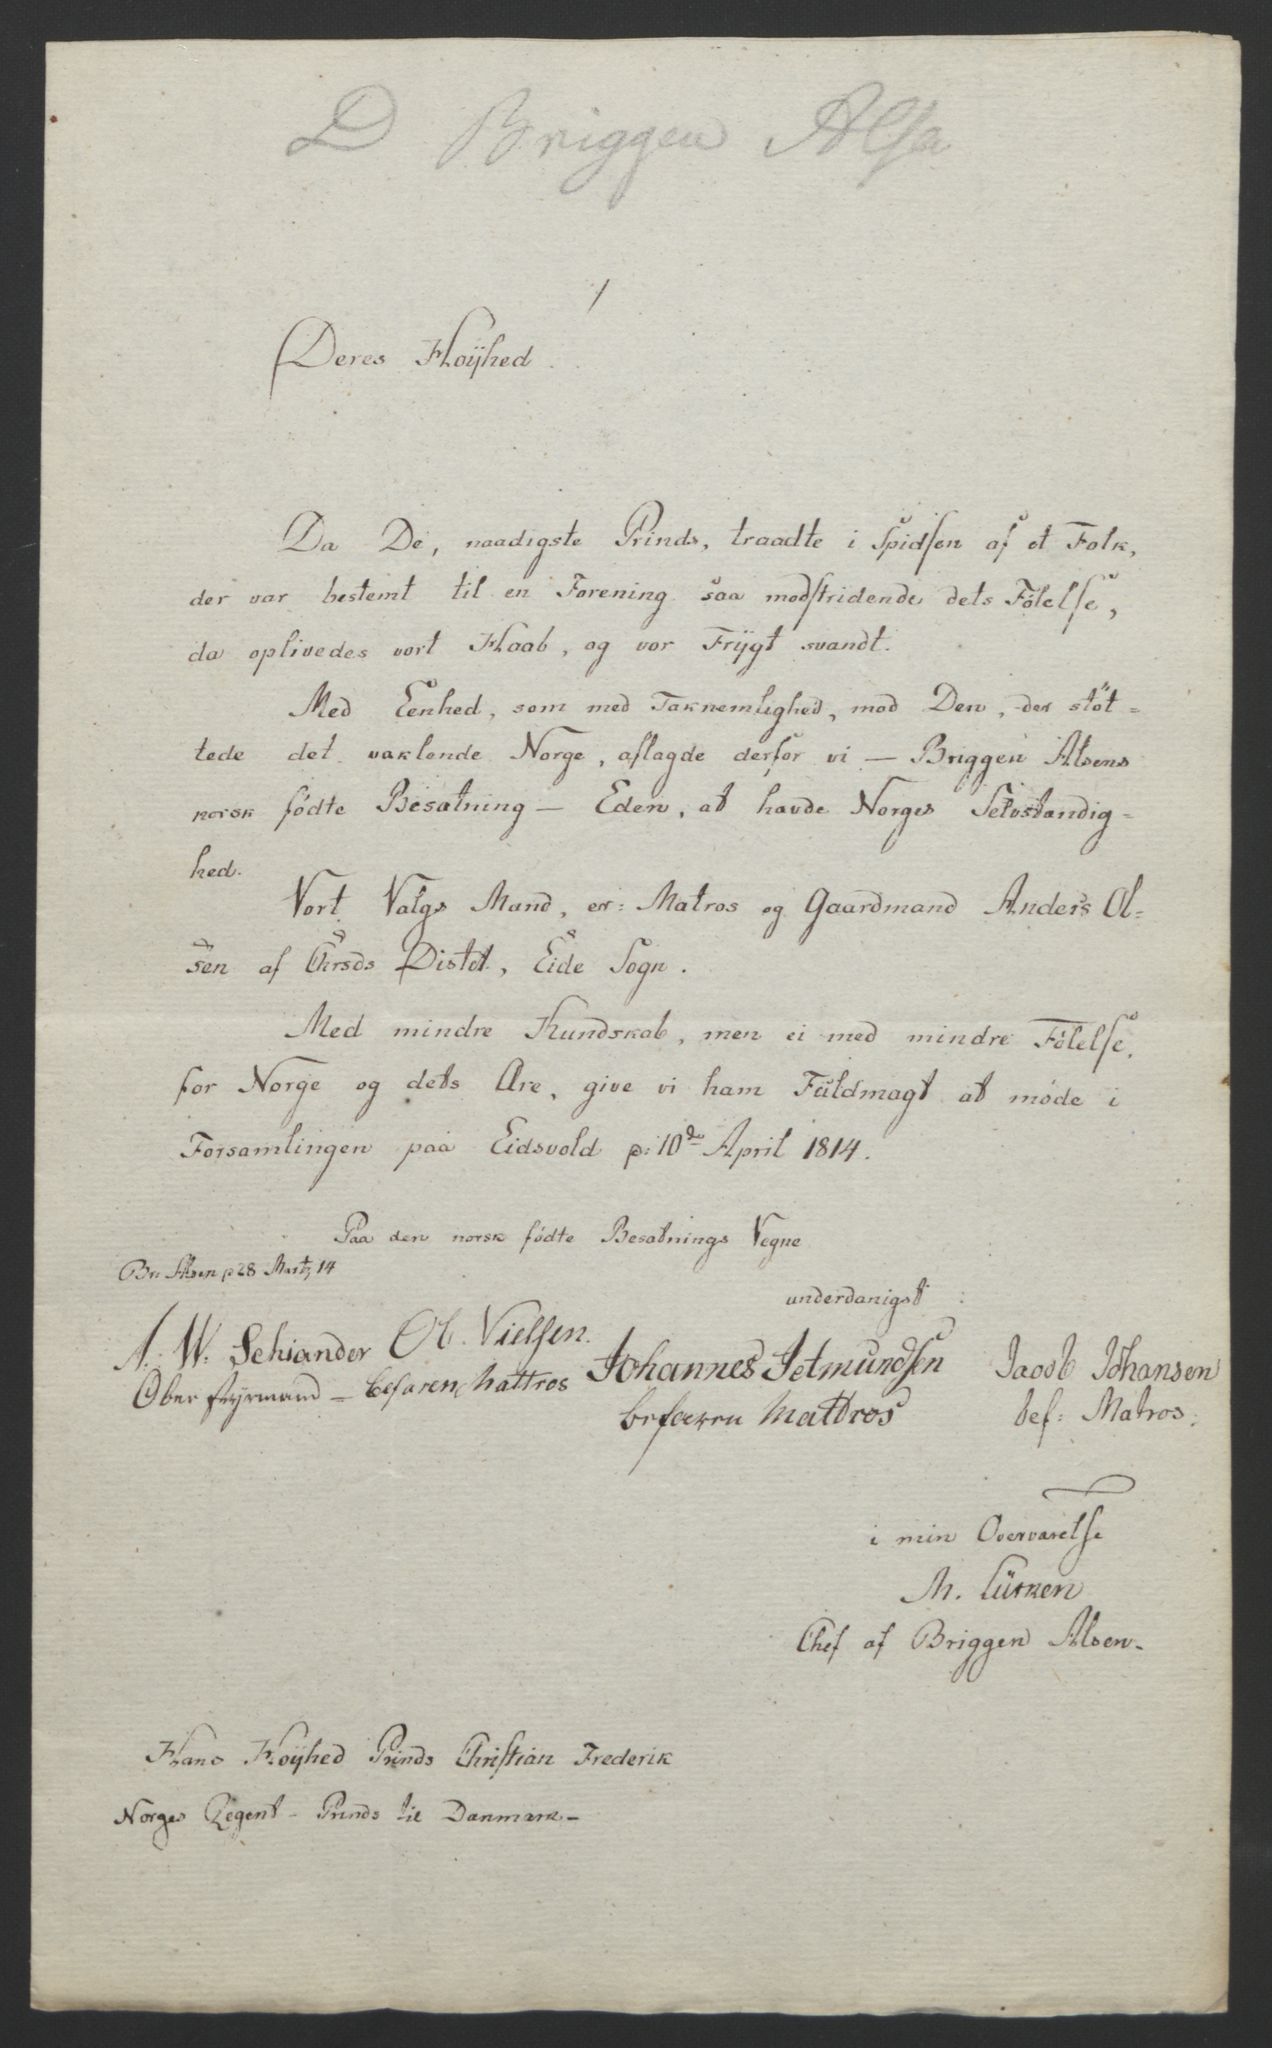 D Briggen Alsa
Deres Høÿhed.
Da De, naadigste Prinds, traadte i Spidsen af et Folk,
der var bestemt til en Forening saa modstridende dets Følelse,
da oplivedes vort Haab, og vor Frÿgt svandt.
Med Eenhed, som med Taknemlighed, mod Den, der støt-
tede det vaklende Norge, aflagde derfor vi — Briggen Alsens
norsk fødte Besætning — Eden, at hævde Norges Selvstændig-
hed.
Vort Valgs Mand, er: Matros og Gaardmand Anders Ol-
sen af Chrsds Distct, Eide Sogn.
Med mindre Kundskab, men ei med mindre Følelse,
for Norge og dets Ære, give vi ham Fuldmagt at møde i
Forsamlingen paa Eidsvold p: 10de April 1814.
Paa den norsk fødte Besætnings Vegne
Br: Alsen p 28 Martz 14
underdanigst:
A: W: Schiander Ol. Nielsen. Johannes Jetmundsen Jacob Johansen
Oberstyrmand — befaren Mattros befaren Mattros bef: Matros.
i min Overværelse
M. Lütken
Chef af Briggen Alsen.
Hans Høÿhed Prinds Christian Frederik
Norges Regent - Prinds til Danmark -